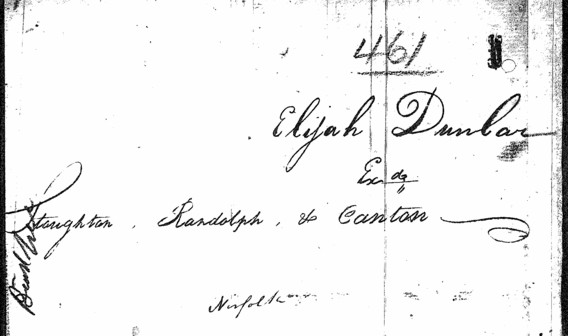 461
Elijah Dunbar
Ex. dg
Stoughton, Randolph, & Canton
Norfolk